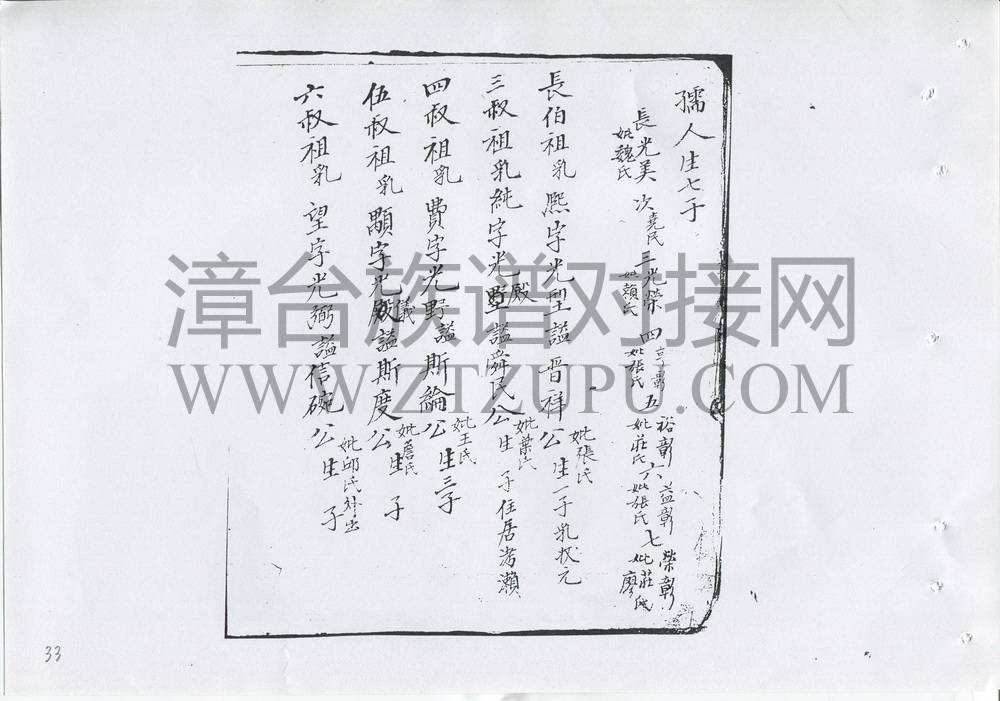 孺人生七子
長光美 次堯民 三光榮 四亨彰 五裕彰 六益彰 七榮彰
妣魏氏 妣賴氏 妣張氏 妣莊氏 妣張氏 妣莊氏 廖氏
長伯祖乳熙字光型謚晋祥公 生一子乳状元
妣張氏
三叔祖乳純字光墅殿謚舜民公 生 子住居岩瀨
妣葉氏
四叔祖乳費字光野謚斯綸公 生三子
妣王氏
伍叔祖乳顯字光殿儀謚斯度公 生 子
妣詹氏
六叔祖乳望字光弼謚信碗公 生 子
妣邱氏
漳台族谱对接网
WWW.ZTZUPU.COM
33